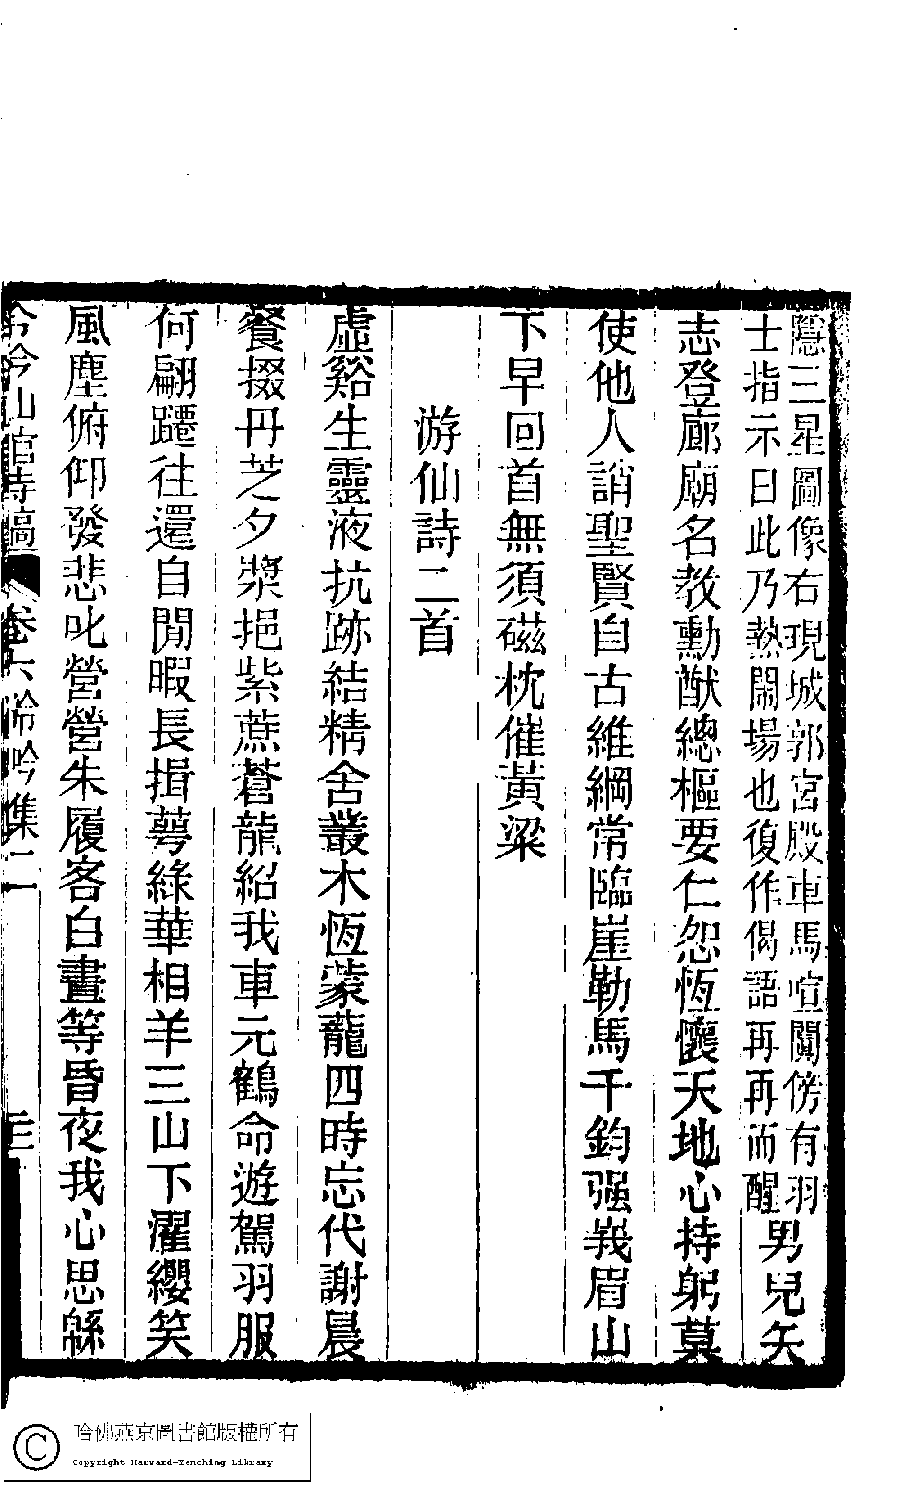 隱三星圖像右現城郭宮殿車馬喧闐傍有羽
士指示曰此乃熱鬧場也復作偈語再再而醒
男兒矢
志登廊廟名教勳猷總樞要仁恕恆懷天地心持躬莫
使他人誚聖賢自古維綱常臨崖勒馬千鈞强峩眉山
下早回首無須磁枕催黃粱
游仙詩二首
虛谿生靈液抗跡結精舍叢木恆蒙蘢四時忘代謝晨
餐掇丹芝夕漿挹紫蔗蒼龍紹我車元鶴命遊駕羽服
何翩躚往還自閒暇長揖萼綠華相羊三山下濯纓笑
風塵俯仰發悲叱營營朱履客白晝等昏夜我心思緜
今今山館詩稿
卷六吟集二
三
哈佛燕京圖書館版權所有
Copyright Harvard-Yenching Library